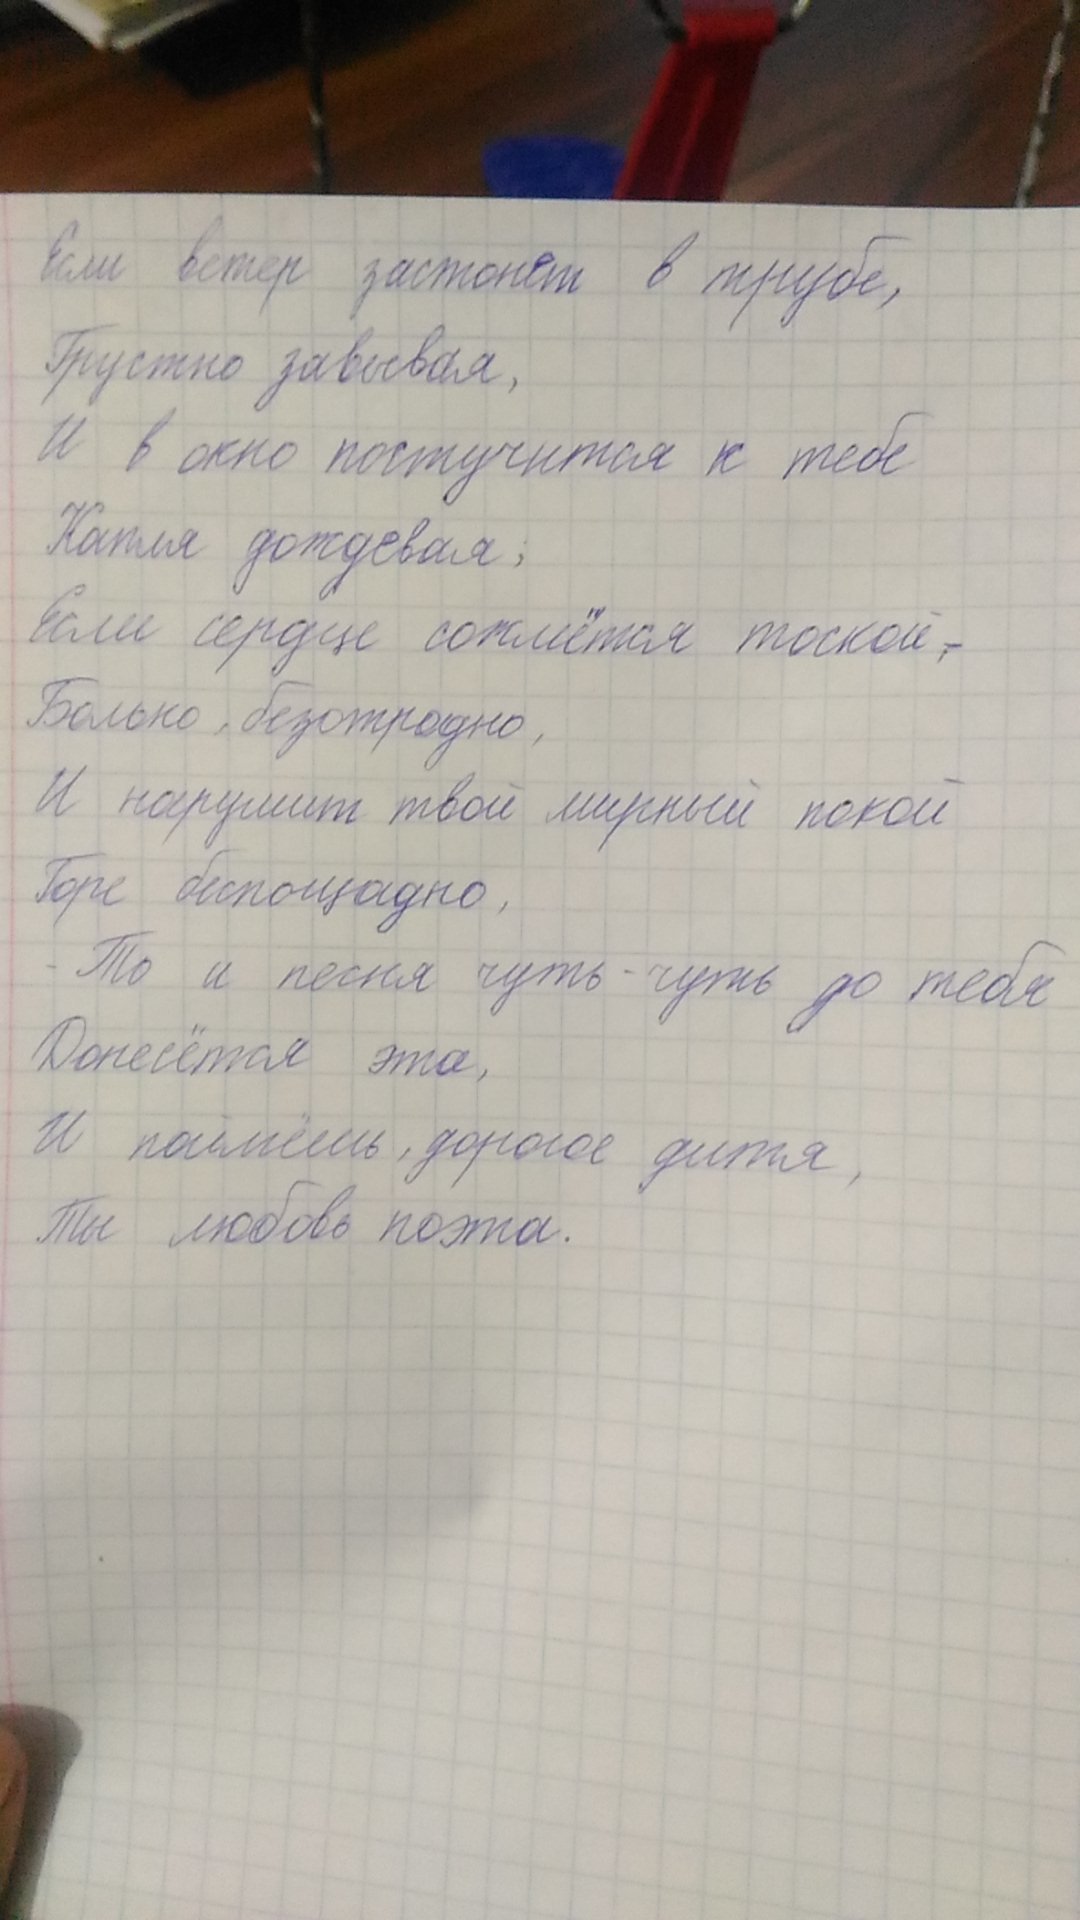 Если ветер застонет в трубе,
Грустно завывая,
И в окно постучится к тебе
Капля дождевая;
Если сердце сожмётся тоской,-
Больно, безотрадно,
И нарушит твой мирный покой
Горе беспощадно,
- То и песня чуть-чуть до тебя
Донесётся эта,
И поймёшь, дорогое дитя,
Ты любовь поэта.